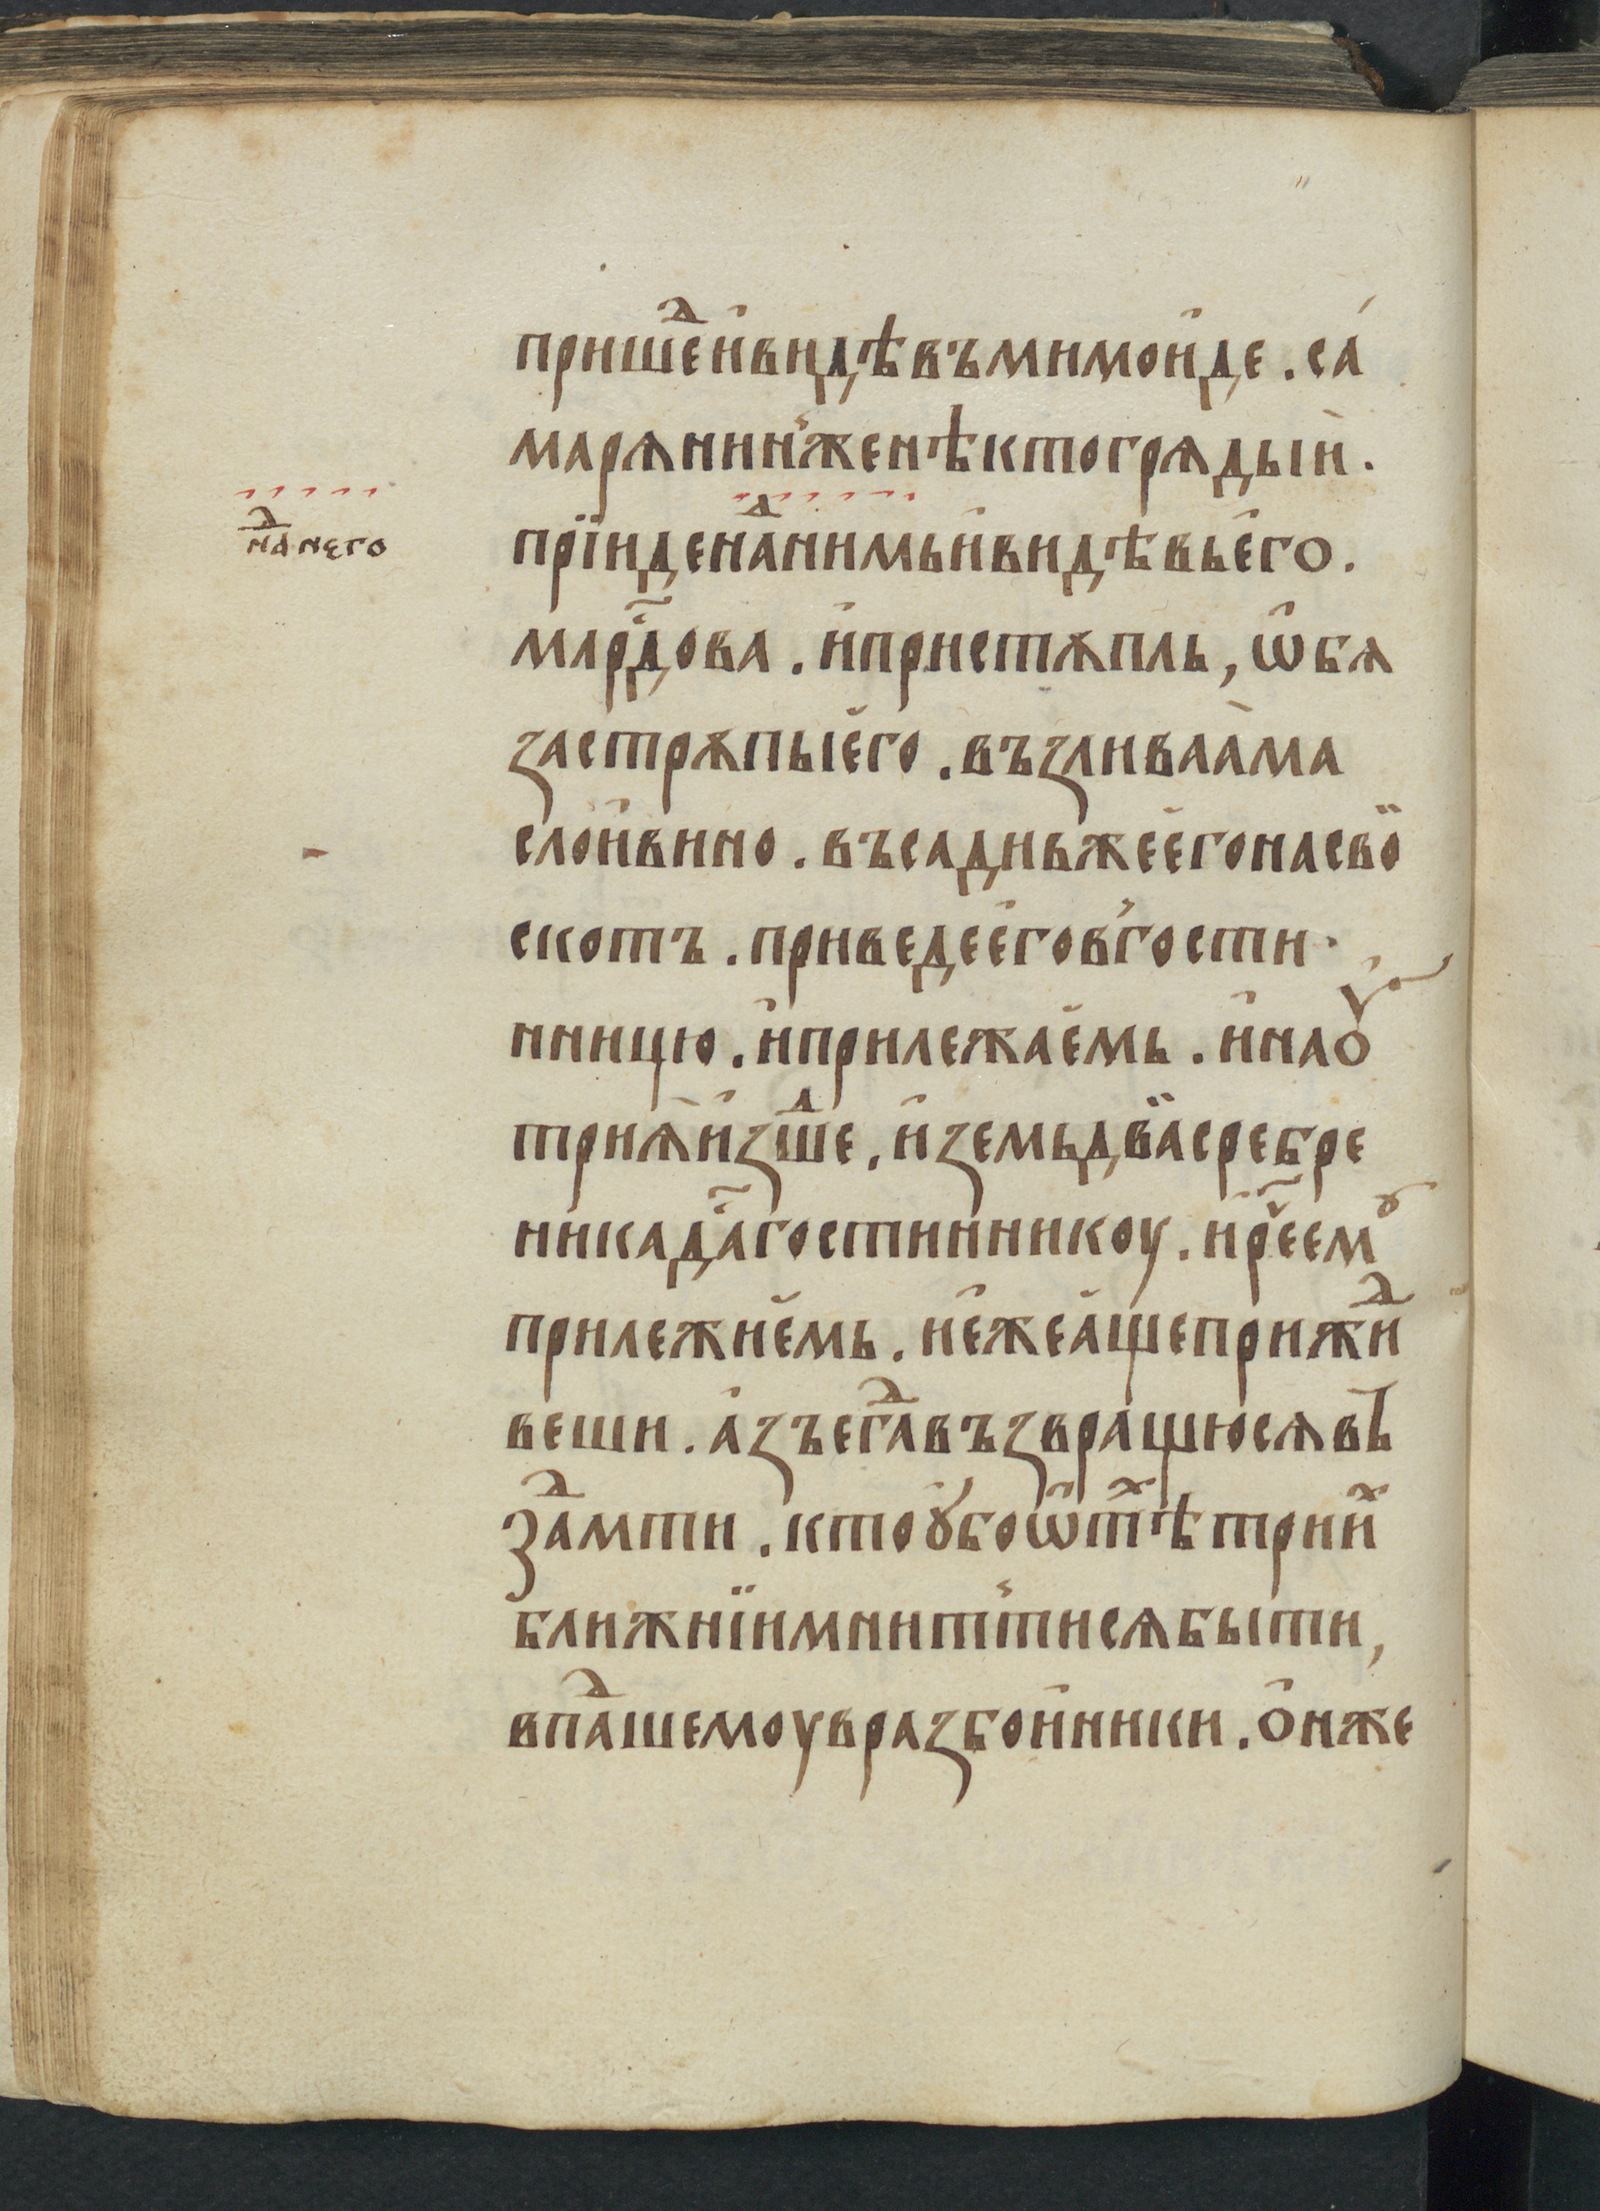 пришеⷣ и҆видѣвъ мимои҆де . са́
марянин̾же нѣкто грядыѝ .
прїиде наⷣнимь и҆видѣвь е҆го .
наⷣ него
млрⷭ҇дова . и҆пристѫпль , ѡ҆бя
застрѫпы е҆го . възливаа̀ ма
сло и҆вино . въсадивже е҆го на свӧ
скотъ . приведе е҆го в̾гости
нницю . и҆прилежа е҆мь . и҆наоу҆
трия̀ и҆зшеⷣ , и҆земь двӓ сребре
ника да҆ гостинникоу . и҆р҃ее емꙋ
прилежи е҆мь . и҆е҆же а҆ще прижⷣи
веши . а҆зъ егаⷣ възвращюся вь
заⷣмти . кто ꙋ҆бо ѿ тѣⷯ триⷯи
ближнїи мнит̾тися быти ,
впаⷣшемоу вразбои҆ники . о҆нже